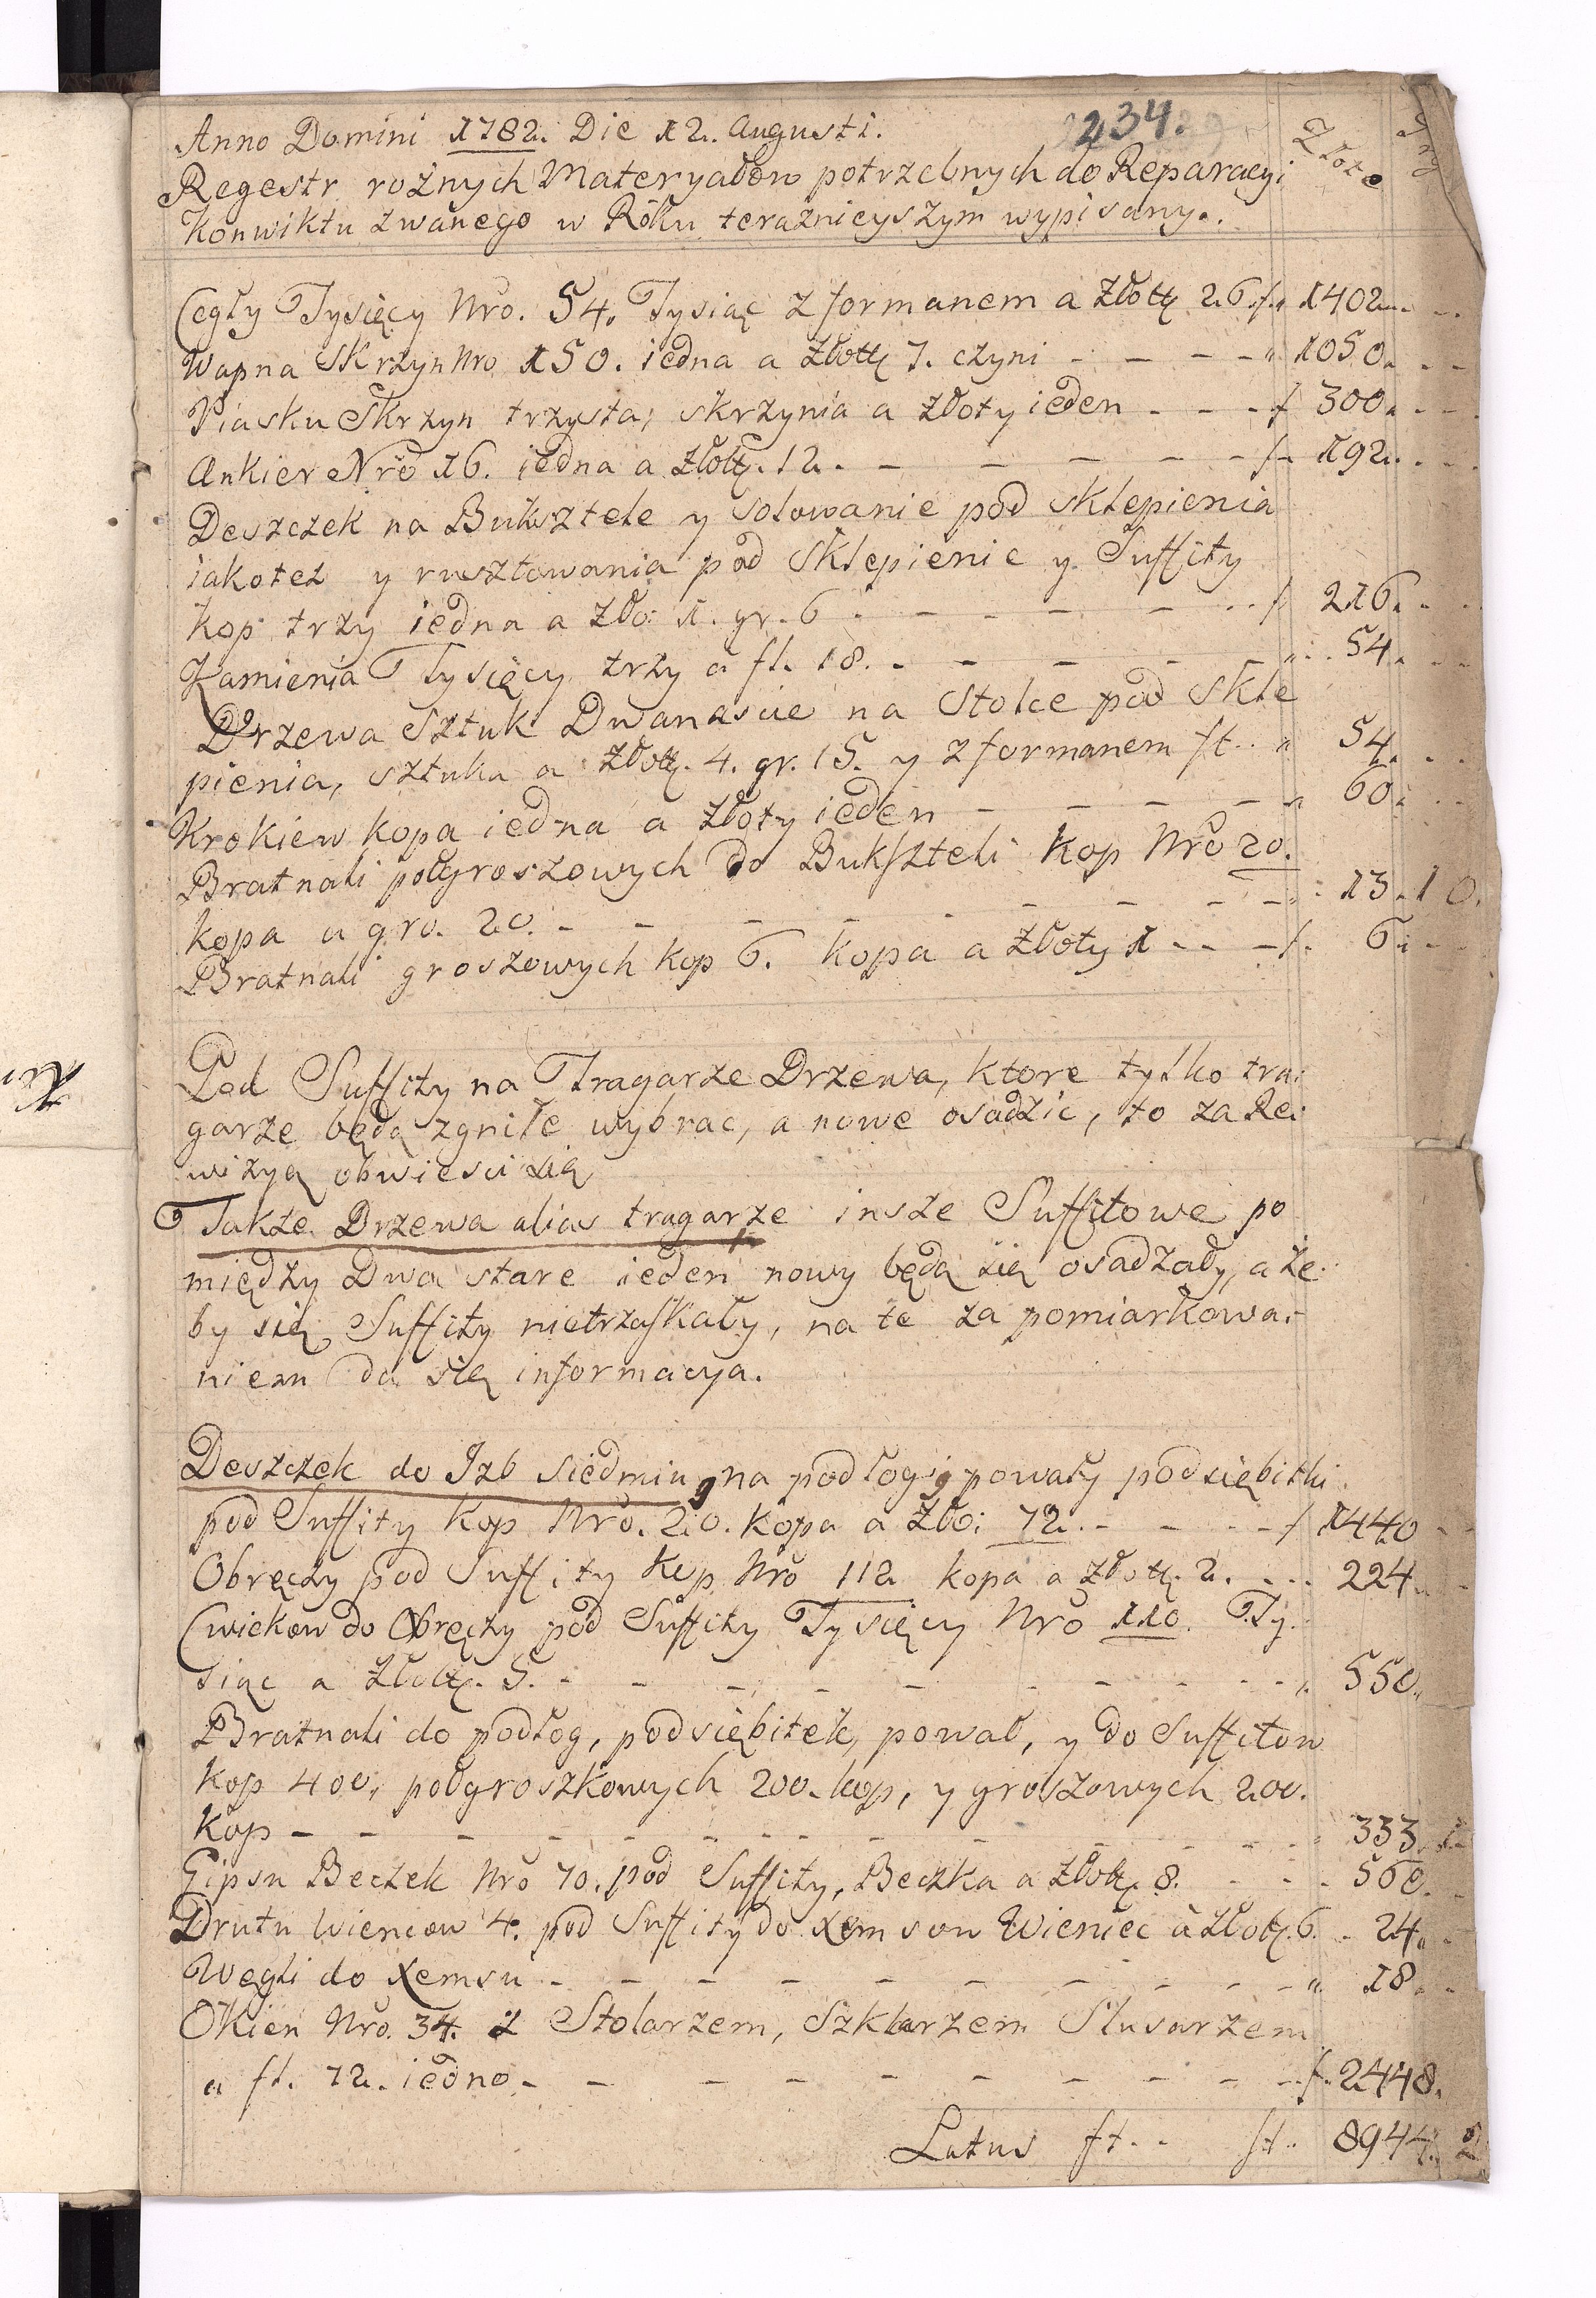 234.
Anno Domini 1782. Die 12. Augusti.
Złote
Regestr rożnych Materyałow potrzebnych do Reparacyi
Konwiktu zwanego w Roku teraznieyszym wypisany.
Cegły Tysięcy Nro. 54. Tysiąc z formanem a Złott. 26. f. 1402.
Wapna Skrzyn Nro 150. iedna a złott 7. czyni - - - - 1050.
Piasku Skrzyn trzysta, skrzynia a złoty ieden - - - f 300.
Ankier Nro 16. iedna a złott. 12. - - - - - f. 192.
Deszczek na Buksztele y solowanie pod sklepienia
iakotez y rusztowania pod Sklepienie y Suffity
kop trzy iedna a zło: 1. gr. 6 - - - - - f 216.
Kamienia Tysięcy trzy a fl. 18. - - - - - 54.
Drzewa Sztuk Dwanascie na Stolce pod Skle
pienia, sztuka a złott. 4. gr. 15. y z formanem fl. 54.
Krokiew kopa iedna a złoty ieden - - - - - 60.
Bratnali połgroszowych do Bukszteli kop Nro 20.
kopa a gro. 20. - - - - - - - 13. 10.
Bratnali groszowych kop 6. kopa a złoty 1 - - - f. 6.
Pod Suffity na Tragarze Drzewa, ktore tylko tra:
garze będą zgniłe wybrac, a nowe osadzic, to za Re:
wizyą obwiesci się
Takze Drzewa alias tragarze insze Suffitowe po
między Dwa stare ieden nowy będą się osadzały, a ze:
by się Suffity nietrzaskały, na te za pomiarkowa:
niem da się informacya.
Deszczek do Izb siedmiu, na podłogi, powały podsiębitki
pod Suffity kop Nro. 20. kopa a zło: 72. - - - - f 1440
Obręczy pod Suffity kop Nro 112 kopa a złott. 2. - - - 224
Cwiekow do Obręczy pod Suffity Tysięcy Nro 110. Ty:
siąc a złott. 5. - - - - - - - - 550.
Bratnali do podłog, podsiębitek, pował, y do Suffitow
kop 400, połgroszkowych 200. kop, y groszowych 200.
kop - - - - - - - - - - 333.
Gipsu Beczek Nro 70. pod Suffity, Beczka a złott. 8. - - - 560.
Drutu wiencow 4. pod Suffity do xemsow Wieniec a złott. 6. - 24.
Węgli do xemsu - - - - - - - - - 18.
Okien Nro. 34. z Stolarzem, Szklarzem Slusarzem
a fl. 72. iedno - - - - - - - - - f. 2448.
Latus fl. - fl. 8944.